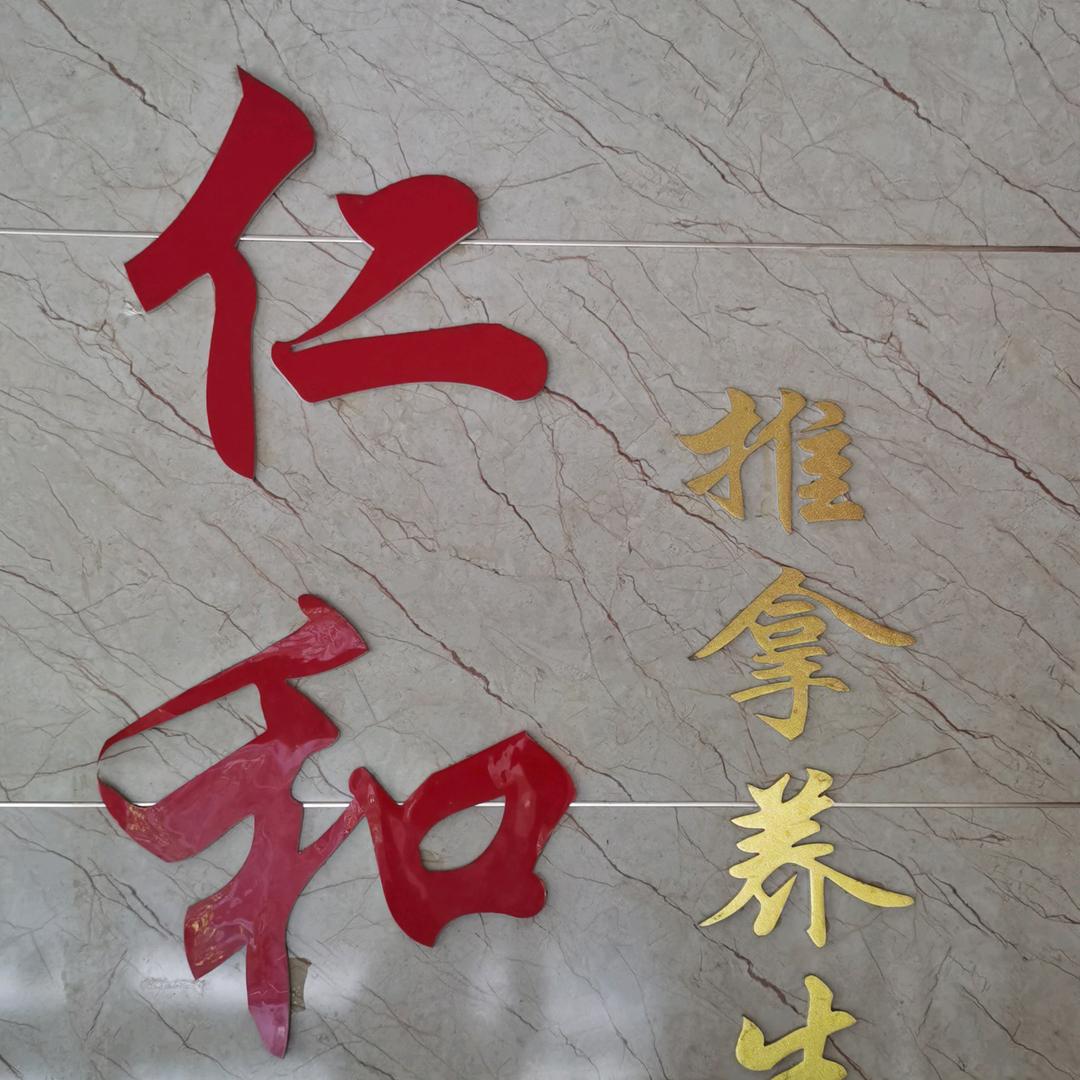 仁和
推拿养生